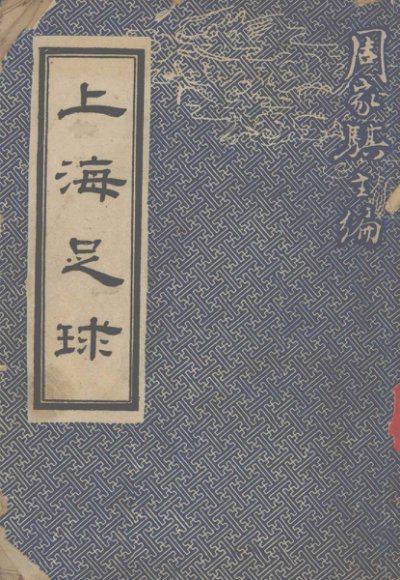 周家騏主編
上海足球